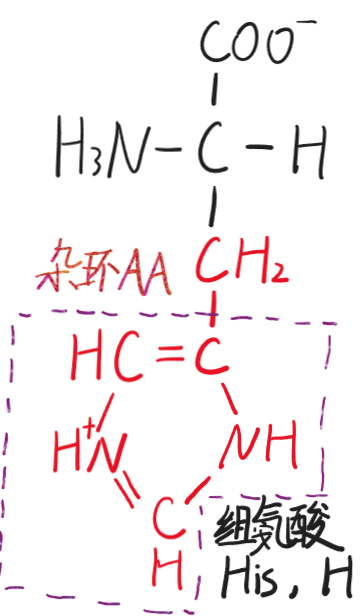 COO⁻
H₃N－C－H
杂环AA CH₂
HC=C
H⁺N NH
C
H
组氨酸
His, H